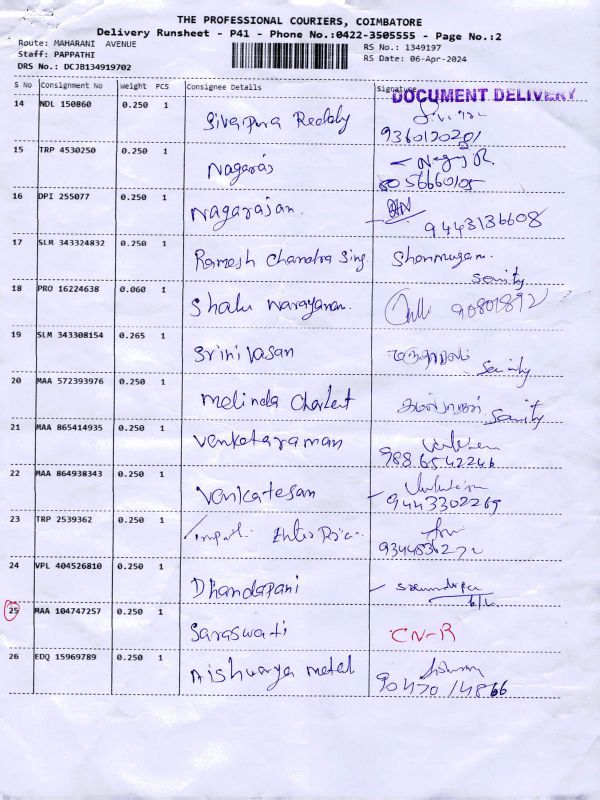 THE PROFESSIONAL COURIERS, COIMBATORE
Delivery Runsheet - P41 - Phone No.:0422-3505555 - Page No.:2
Route: MAHARANI AVENUE
Staff: PAPPATHI
DRS No.: DCJB134919702
RS No.: 1349197
RS Date: 06-Apr-2024
S No Consignment No Weight PCS Consignee Details Signature
DOCUMENT DELIVERY
14 NDL 150860 0.250 1 Sivapura Reddy
9360120201
15 TRP 4530250 0.250 1 Nagaraj
8056660105
16 DPI 255077 0.250 1 Nagarajan
9443136608
17 SLM 343324832 0.250 1 Ramesh Chandra Sing. Shanmugam.
18 PRO 16224638 0.060 1 Shalu Narayanan.
19 SLM 343308154 0.265 1 Srinivasan
20 MAA 572393976 0.250 1 Melinda
21 MAA 865414935 0.250 1 Venketaraman
22 MAA 864938343 0.250 1 Venkatesan
9443302269
23 TRP 2539362 0.250 1
24 VPL 404526810 0.250 1 Dhandapani
25 MAA 104747257 0.250 1 Saraswati CN-R
26 EDQ 15969789 0.250 1 Aishwarya metal